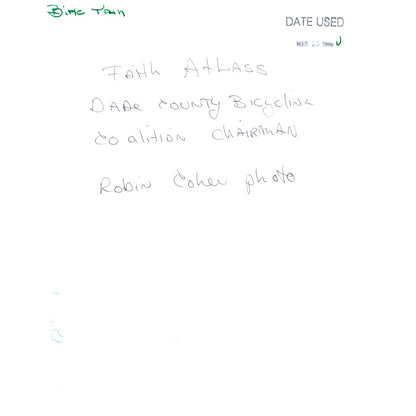 DATE USED
MAR 2
Faith Athass
Dade County Bicycling
Coalition Chairman
Robin Cohen photo